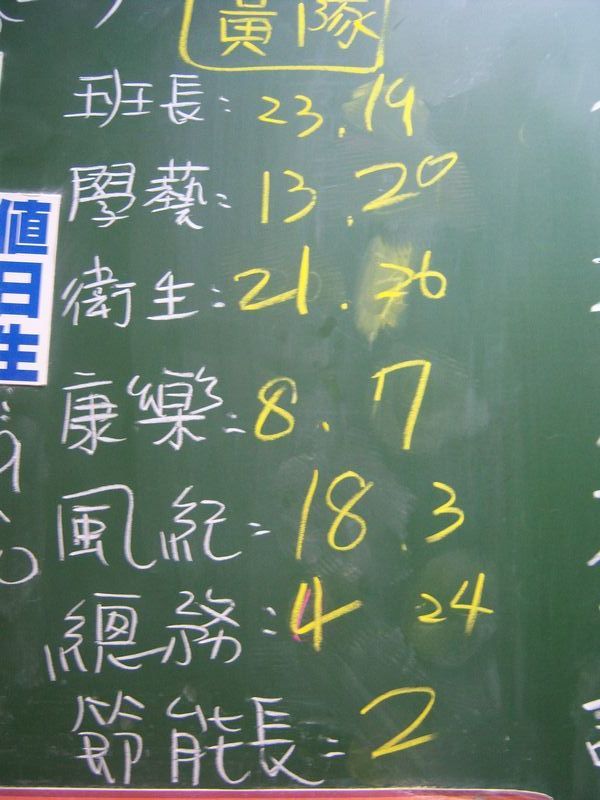 黃隊
班長：23.19
學藝：13.20
衛生：21.26
康樂：8.7
風紀：18.3
總務：4 24
節能長：2
值日生